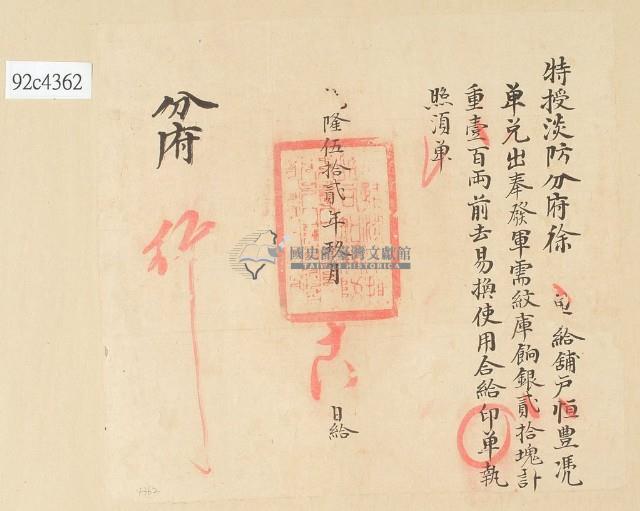 特授淡防分府徐 為給舖戶恒豊憑
单兑出奉發軍需紋庫餉銀貳拾塊計
重壹百両前去易換使用合給印单執
照須单
隆伍拾貳年玖月
日給
分府
行
92c4362
國史館臺灣文獻館
TAIWAN HISTORICA
4362